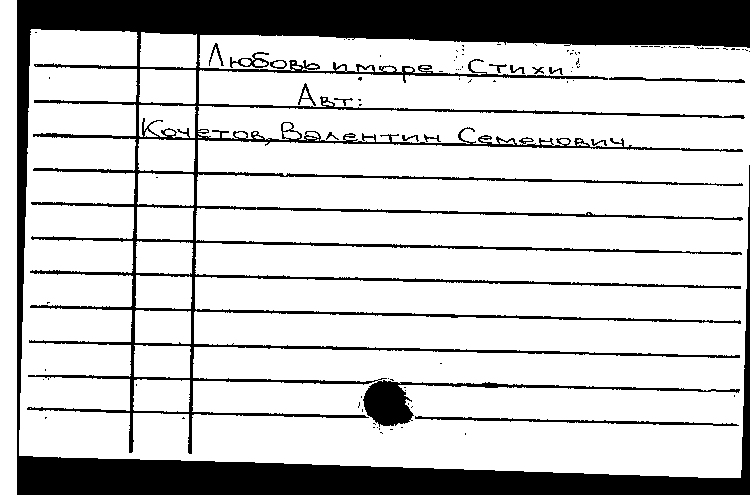 Любовь и море. Стихи
Авт:
Кочетов, Валентин Семенович.